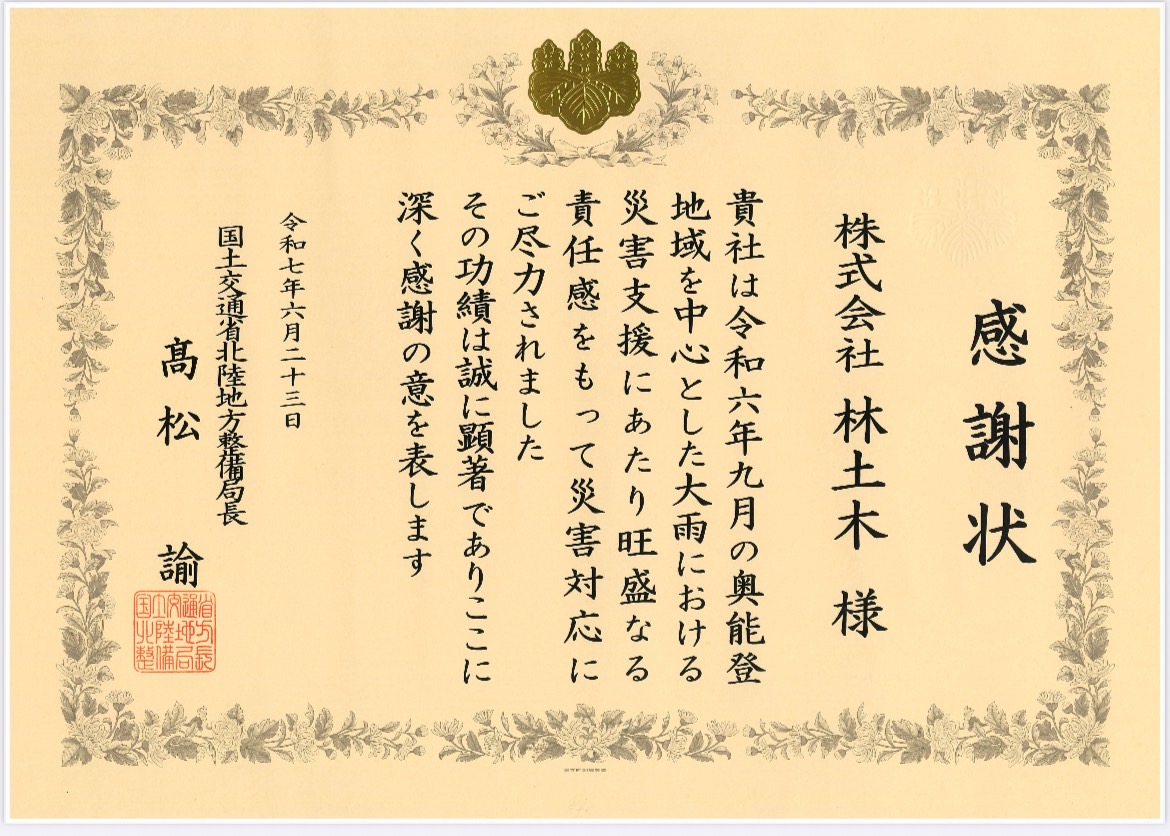 感謝状
株式会社 林土木 様
貴社は令和六年九月の奥能登
地域を中心とした大雨における
災害支援にあたり旺盛なる
責任感をもって災害対応に
ご尽力されました
その功績は誠に顕著でありここに
深く感謝の意を表します
令和七年六月二十三日
国土交通省北陸地方整備局長
髙松 諭